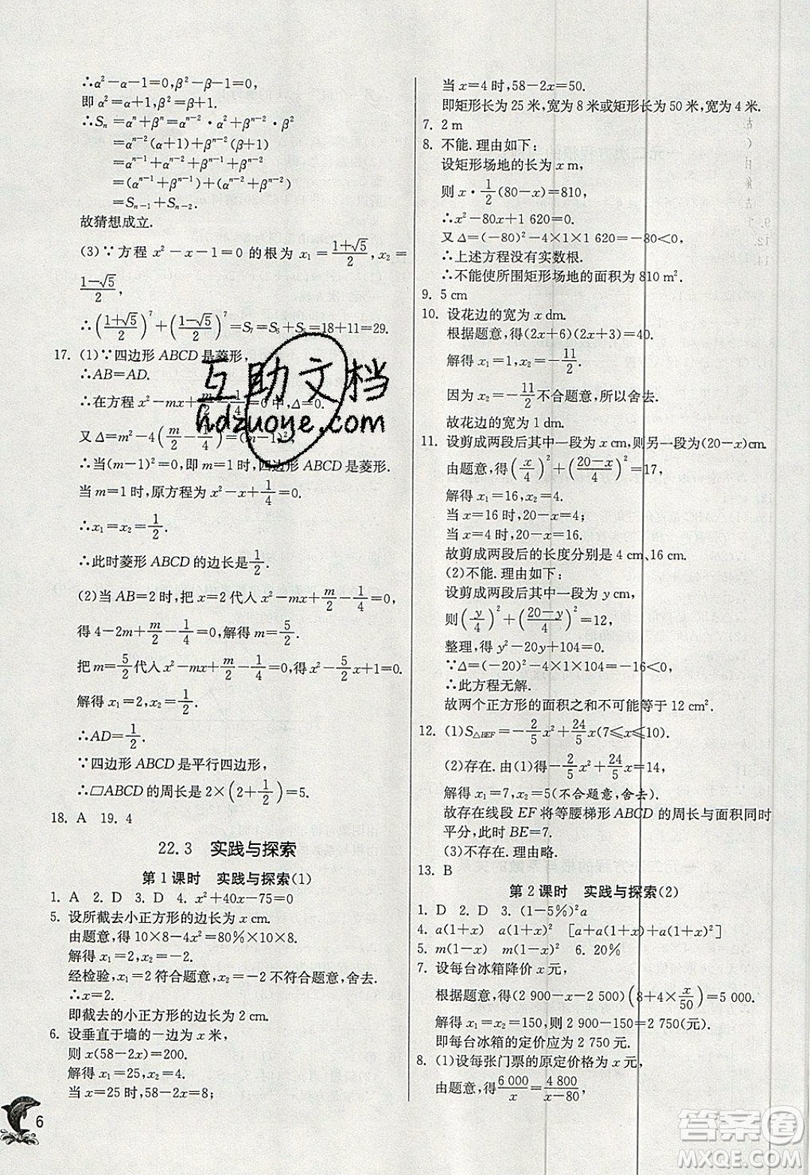 ∴α²-α-1=0,β²-β-1=0.
即 α²=α+1,β²=β+1.
∴Sₙ=αⁿ+βⁿ=αⁿ⁻²·α²+βⁿ⁻²·β²
=αⁿ⁻²(α+1)+βⁿ⁻²(β+1)
=αⁿ⁻¹+αⁿ⁻²+βⁿ⁻¹+βⁿ⁻²
=αⁿ⁻¹+βⁿ⁻¹+αⁿ⁻²+βⁿ⁻²
=Sₙ₋₁+Sₙ₋₂.
故猜想成立.
(3)∵方程 x²-x-1=0 的根为 x₁=(1+√5)/2,x₂=
(1-√5)/2,
∴((1+√5)/2)⁷+((1-√5)/2)⁷=S₇=S₆+S₅=18+11=29.
17. (1)∵四边形 ABCD 是菱形,
∴AB=AD.
∴在方程 x²-mx+m/2-1/4=0 中,Δ=0.
又 Δ=m²-4(m/2-1/4)=(m-1)²,
∴当(m-1)²=0,即 m=1 时,四边形 ABCD 是菱形.
当 m=1 时,原方程为 x²-x+1/4=0.
∴x₁=x₂=1/2.
∴此时菱形 ABCD 的边长是1/2.
(2)当 AB=2 时,把 x=2 代入 x²-mx+m/2-1/4=0,
得 4-2m+m/2-1/4=0,解得 m=5/2.
把 m=5/2代入 x²-mx+m/2-1/4=0,
解得 x₁=2,x₂=1/2.
∴AD=1/2.
∵四边形 ABCD 是平行四边形,
∴▱ABCD 的周长是 2×(2+1/2)=5.
18. A 19. 4
22.3 实践与探索
第 1 课时 实践与探索(1)
1. A 2. D 3. D 4. x²+40x-75=0
5. 设所截去小正方形的边长为 x cm.
由题意,得 10×8-4x²=80%×10×8.
解得 x₁=2,x₂=-2.
经检验,x₁=2 符合题意,x₂=-2 不符合题意,舍去.
∴x=2.
即截去的小正方形的边长为 2 cm.
6. 设垂直于墙的一边为 x 米,
则 x(58-2x)=200.
解得 x₁=25,x₂=4.
当 x=25 时,58-2x=8;
6
当 x=4 时,58-2x=50.
即矩形长为 25 米,宽为 8 米或矩形长为 50 米,宽为 4 米.
7. 2 m
8. 不能. 理由如下:
设矩形场地的长为 x m,
则 x·1/2(80-x)=810.
∴x²-80x+1 620=0.
又 Δ=80²-4×1×1 620=-80<0,
∴上述方程没有实数根.
∴不能使所围矩形场地的面积为 810 m².
9. 5 cm
10. 设花边的宽为 x dm.
根据题意,得(2x+6)(2x+3)=40.
解得 x₁=1,x₂=-11/2.
因为 x₂=-11/2不合题意,所以舍去.
故花边的宽为 1 dm.
11. 设剪成两段后其中一段为 x cm,则另一段为(20-x)cm.
由题意,得(x/4)²+((20-x)/4)²=17,
解得 x₁=16,x₂=4.
当 x=16 时,20-x=4;
当 x=4 时,20-x=16.
故剪成两段后的长度分别是 4 cm、16 cm.
(2)不能. 理由如下:
设剪成两段后其中一段为 y cm,
则(y/4)²+((20-y)/4)²=12,
整理,得 y²-20y+104=0.
∵Δ=(-20)²-4×1×104=-16<0,
∴此方程无解.
故两个正方形的面积之和不可能等于 12 cm².
12. (1)S△BEF=-2/5x²+24/5x(7≤x≤10).
(2)存在. 由题意,得-2/5x²+24/5x=14,
解得 x₁=7,x₂=5(不合题意,舍去).
故存在线段 EF 将等腰梯形 ABCD 的周长与面积同时
平分,此时 BE=7.
(3)不存在. 理由略.
13. B
第 2 课时 实践与探索(2)
1. D 2. D 3. (1-5%)²a
4. a(1+x) a(1+x)² [a+a(1+x)+a(1+x)²]
5. m(1-x) m(1-x)² 6. 20%
7. 设每台冰箱降价 x 元,
根据题意,得(2 900-x-2 500)(8+4×x/50)=5 000.
解得 x₁=x₂=150. 则 2 900-150=2 750(元).
即每台冰箱的定价应为 2 750 元.
8. (1)设每张门票的原定价格为 x 元,
由题意,得6 000/x=4 800/(x-80).
互助文档
hdzuoye.com
答案圈
MXQE.COM